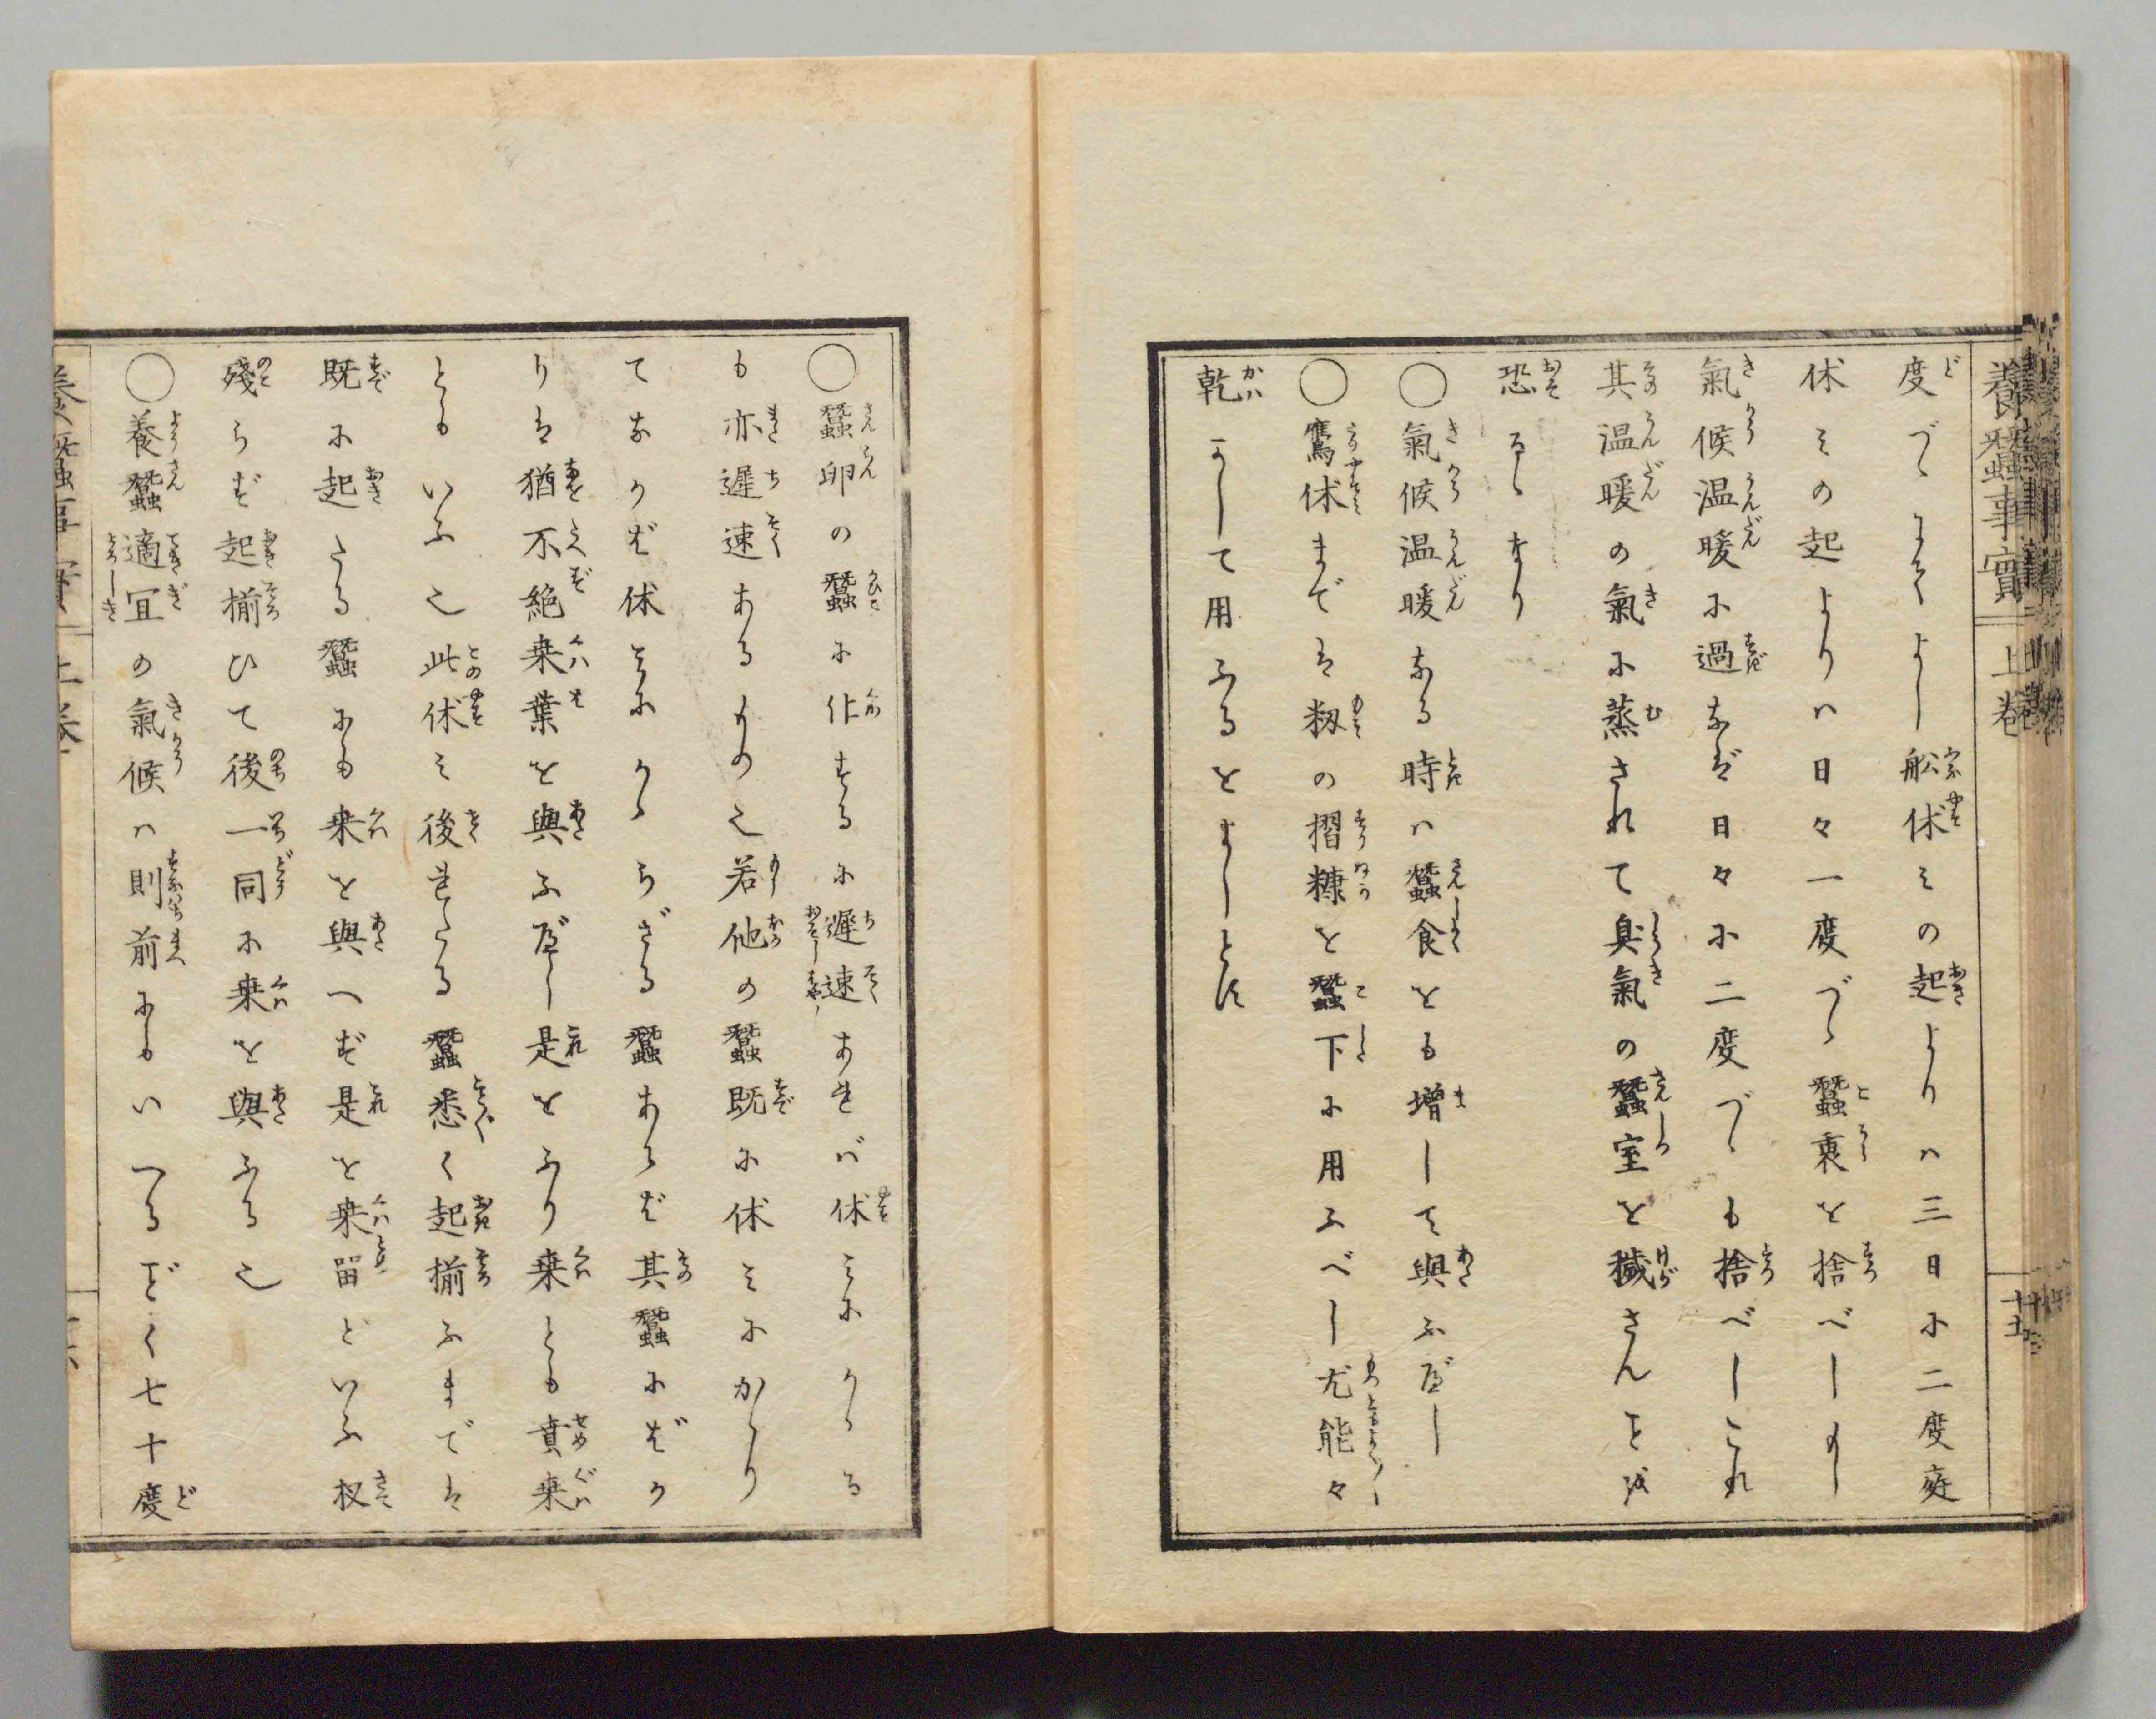 養蠶事實 上卷 十五
度づゝにてよし舩休みの起よりハ三日に二度庭
休みの起よりハ日々一度づゝ蠶裏を捨べしもし
氣候温暖に過なバ日々に二度づゝも捨べしこれ
其温暖の氣に蒸されて臭氣の蠶室を穢さんことを
恐るゝなり
○氣候温暖なる時ハ蠶食をも増して與ふべし
○鷹休までは籾の摺糠を蠶下に用ふべし尤能々
乾かして用ふるをよしとす
○蠶卵の蠶に化するに遲速あれバ休みにかゝる
も亦遲速あるもの也若他の蠶既に休みにかゝり
てなかば休みにかゝらざる蠶あらば其蠶にばか
りは猶不絶桒葉を與ふべし是をふり桒とも賁桒
ともいふ也此休み後れたる蠶悉く起揃ふまでは
既に起たる蠶にも桒を與へず是を桒留といふ扠
殘らず起揃ひて後一同に桒を與ふる也
○養蠶適宜の氣候ハ則前にもいへるごとく七十度
養蠶事實 上卷